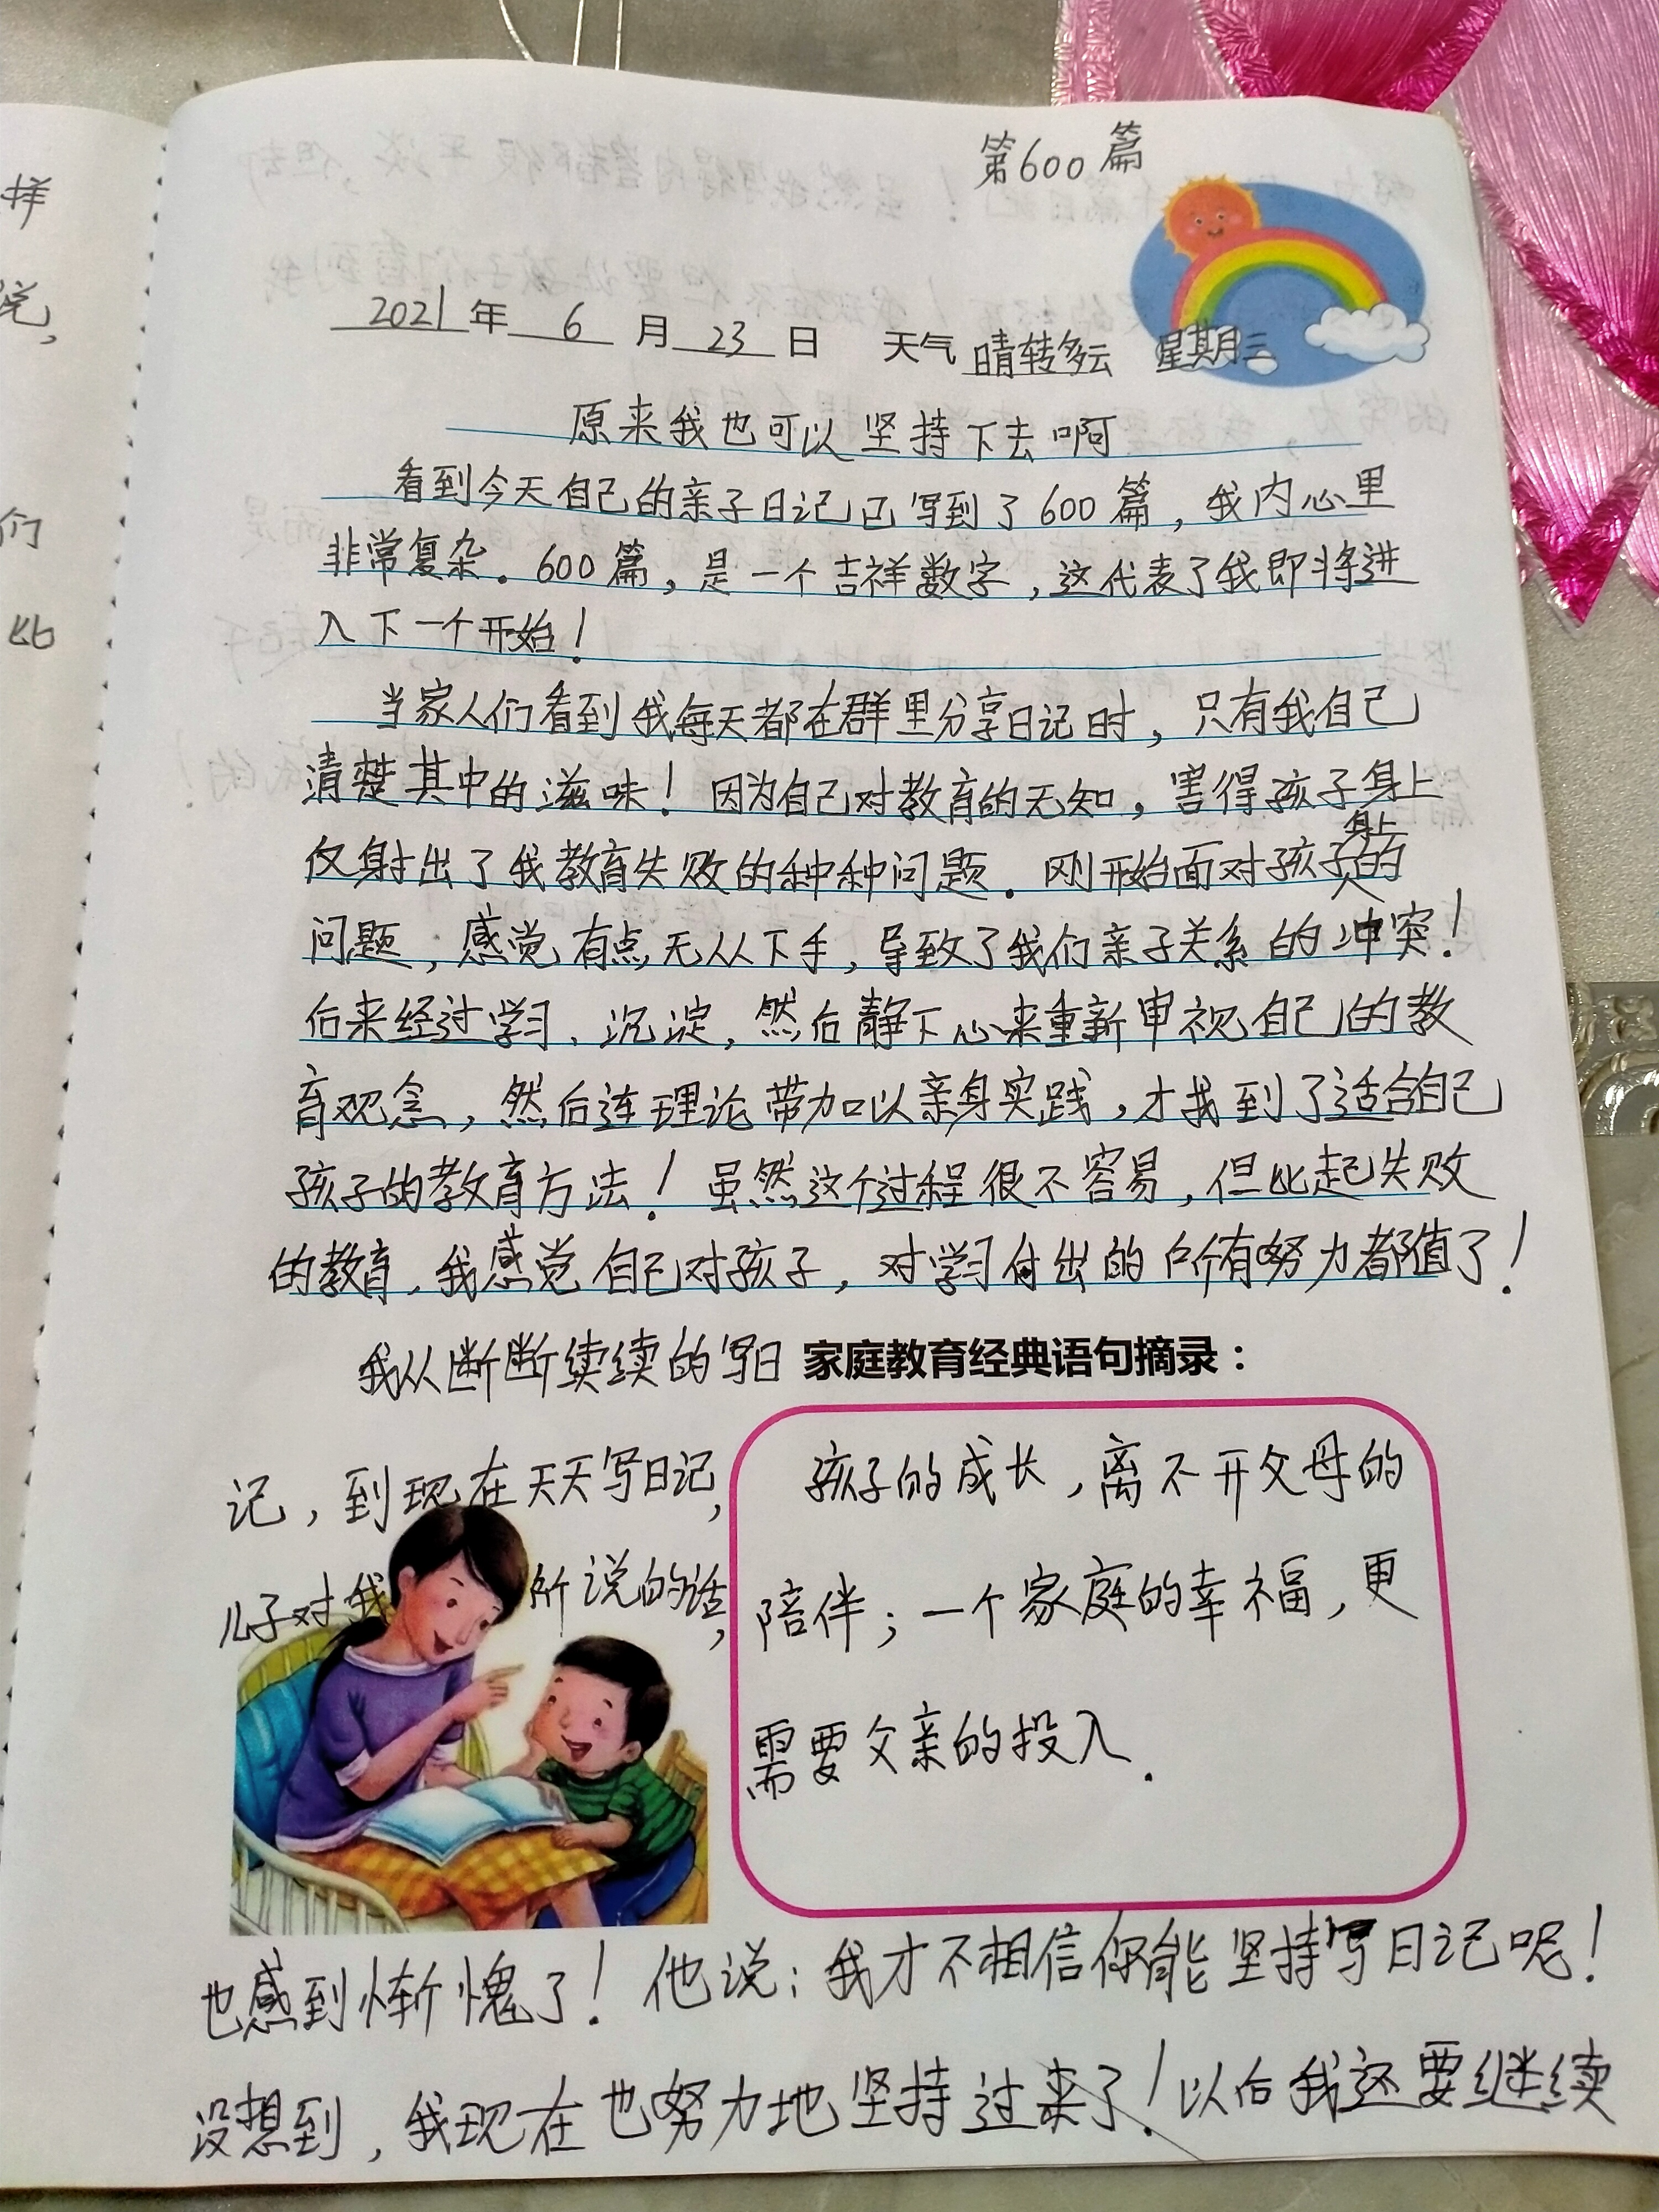 样
说,
们
比
第600篇
2021年 6 月 23 日 天气 晴转多云 星期三
原来我也可以坚持下去啊
看到今天自己的亲子日记已写到了600篇，我内心里
非常复杂。600篇，是一个吉祥数字，这代表了我即将进
入下一个开始！
当家人们看到我每天都在群里分享日记时，只有我自己
清楚其中的滋味！因为自己对教育的无知，害得孩子身上
仅射出了我教育失败的种种问题。刚开始面对孩子身上的
问题，感觉有点无从下手，导致了我们亲子关系的冲突！
后来经过学习、沉淀，然后静下心来重新审视自己的教
育观念，然后连理论带加以亲身实践，才找到了适合自己
孩子的教育方法！虽然这个过程很不容易，但比起失败
的教育，我感觉自己对孩子，对学习付出的所有努力都值了！
我从断断续续的写日
家庭教育经典语句摘录：
记，到现在天天写日记，
儿子对我所说的话，
孩子的成长，离不开父母的
陪伴；一个家庭的幸福，更
需要父亲的投入.
也感到惭愧了！他说：我才不相信你能坚持写日记呢！
没想到，我现在也努力地坚持过来了！以后我还要继续